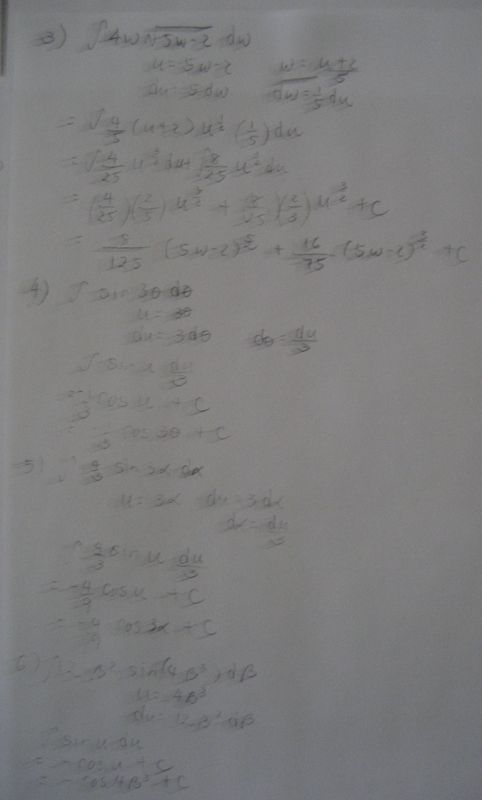 3) ∫ 4w √5w-2 dw
u = 5w-2 w = u+2/5
du = 5dw dw = 1/5 du
= ∫ 4/5 (u+2) u^1/2 (1/5) du
= ∫ 4/25 u^3/2 du + ∫ 8/25 u^1/2 du
= (4/25)(2/5) u^5/2 + (8/25)(2/3) u^3/2 + C
= 8/125 (5w-2)^5/2 + 16/75 (5w-2)^3/2 + C
4) ∫ sin 3θ dθ
u = 3θ
du = 3dθ dθ = du/3
∫ sin u du/3
= -1/3 cos u + C
= -1/3 cos 3θ + C
5) ∫ sin 3α dα
u = 3α du = 3dα
dα = du/3
∫ sin u du/3
= -4/9 cos u + C
= -4/9 cos 3α + C
6) ∫ 12 β² sin(4β³) dβ
u = 4β³
du = 12β² dβ
∫ sin u du
= -cos u + C
= -cos 4β³ + C